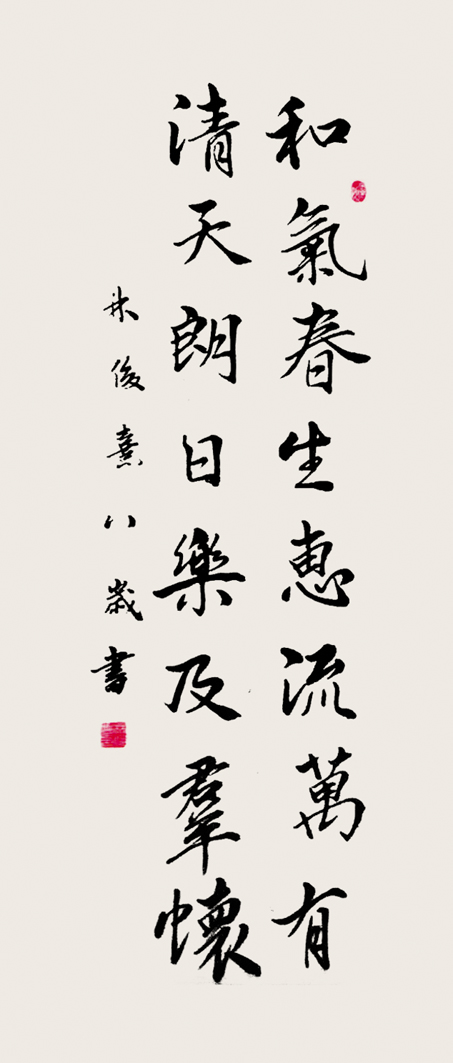 和氣春生惠流萬有
清天朗日樂及羣懷
朱俊熹八歲書